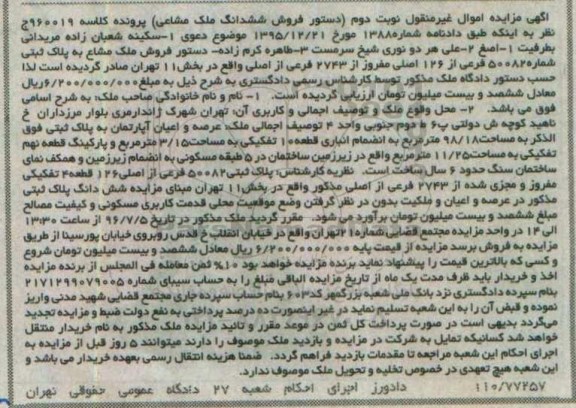 آگهی مزایده اموال غیرمنقول نوبت دوم (دستور فروش ششدانگ ملک مشاعی) پرونده کلاسه ۹۶۰۰۱۹ج
نظر به اینکه طبق دادنامه شماره۱۳۸۸ مورخ ۱۳۹۵/۱۲/۲۱ موضوع دعوی ۱-سکینه شعبان زاده مریدانی
بطرفیت ۱-اصغ ۲-علی هر دو نوری شیخ سرمست ۳-طاهره کرم زاده- دستور فروش ملک مشاع به پلاک ثبتی
شماره۵۰۰۸۲ فرعی از ۱۲۶ اصلی مفروز از ۲۷۴۳ فرعی از اصلی واقع در بخش۱۱ تهران صادر گردیده است لذا
حسب دستور دادگاه ملک مذکور توسط کارشناس رسمی دادگستری به شرح ذیل به مبلغ ۶/۲۰۰/۰۰۰/۰۰۰ریال
معادل ششصد و بیست میلیون تومان ارزیابی گردیده است. ۱- نام و نام خانوادگی صاحب ملک: به شرح اسامی
فوق می باشد. ۲- محل وقوع ملک و توصیف اجمالی و کاربری آن: تهران شهرک ژاندارمری بلوار مرزداران خ
ناهید کوچه ش دولتی پ۶ ط دوم جنوبی واحد ۴ توصیف اجمالی ملک: عرصه و اعیان آپارتمان به پلاک ثبتی فوق
الذکر به مساحت۹۸/۱۸ مترمربع به انضمام انباری قطعه۱۰ تفکیکی به مساحت۳/۱۵ مترمربع و پارکینگ قطعه نهم
تفکیکی به مساحت۱۱/۲۵ مترمربع واقع در زیرزمین ساختمان در ۵ طبقه مسکونی به انضمام زیرزمین و همکف نمای
ساختمان سنگ حدود ۶ سال ساخت است. نظریه کارشناس: پلاک ثبتی۵۰۰۸۲ فرعی از اصلی۱۲۶ قطعه۴ تفکیکی
مفروز و مجزی شده از ۲۷۴۳ فرعی از اصلی مذکور واقع در بخش۱۱ تهران مبنای مزایده شش دانگ پلاک ثبتی
مذکور در عرصه و اعیان و ملکیت بدون در نظر گرفتن وضع موقعیت محلی قدمت کاربری مسکونی و کیفیت مصالح
مبلغ ششصد و بیست میلیون تومان برآورد می شود. مقرر گردید ملک مذکور در تاریخ ۹۶/۷/۵ از ساعت ۱۳:۳۰
الی ۱۴ در واحد مزایده مجتمع قضایی شماره۲۱تهران واقع در خیابان انقلاب خ قدس روبروی خیابان پورسینا از طریق
مزایده به فروش برسد مزایده از قیمت پایه ۶/۲۰۰/۰۰۰/۰۰۰ ریال معادل ششصد و بیست میلیون تومان شروع
و کسی که بالاترین قیمت را پیشنهاد نماید برنده مزایده خواهد بود ۱۰% ثمن معامله فی المجلس از برنده مزایده
اخذ و خریدار باید ظرف مدت یک ماه از تاریخ مزایده الباقی مبلغ را به حساب سیبای شماره ۲۱۷۱۲۹۹۰۷۹۰۰۵
بنام سپرده دادگستری نزد بانک ملی شعبه بزرگمهر کد۶۰۳ بنام حساب سپرده جاری مجتمع قضایی شهید مدنی واریز
نموده و قبض آن را به این شعبه تسلیم نماید در غیر اینصورت ده درصد پرداختی به نفع دولت ضبط و مزایده تجدید
می‌گردد بدیهی است در صورت پرداخت کل ثمن در موعد مقرر و تائید مزایده ملک مذکور به نام خریدار منتقل
خواهد شد کسانیکه تمایل به شرکت در مزایده و بازدید ملک موصوف را دارند میتوانند ۵ روز قبل از مزایده به
اجرای احکام این شعبه مراجعه تا مقدمات بازدید فراهم گردد. ضمنا هزینه انتقال رسمی بعهده خریدار می باشد و
این شعبه هیچ تعهدی در خصوص تخلیه و تحویل ملک موصوف ندارد.
۱۱۰/۷۷۲۵۷ دادورز اجرای احکام شعبه ۲۷ دادگاه عمومی حقوقی تهران